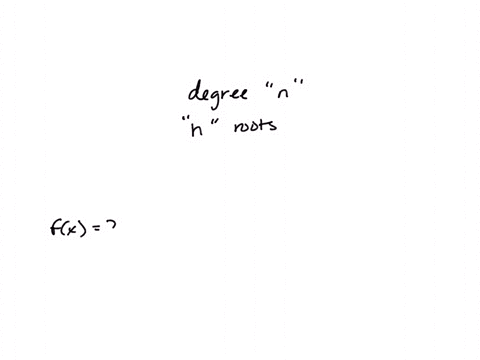 degree "n"
"n" roots
f(x) =